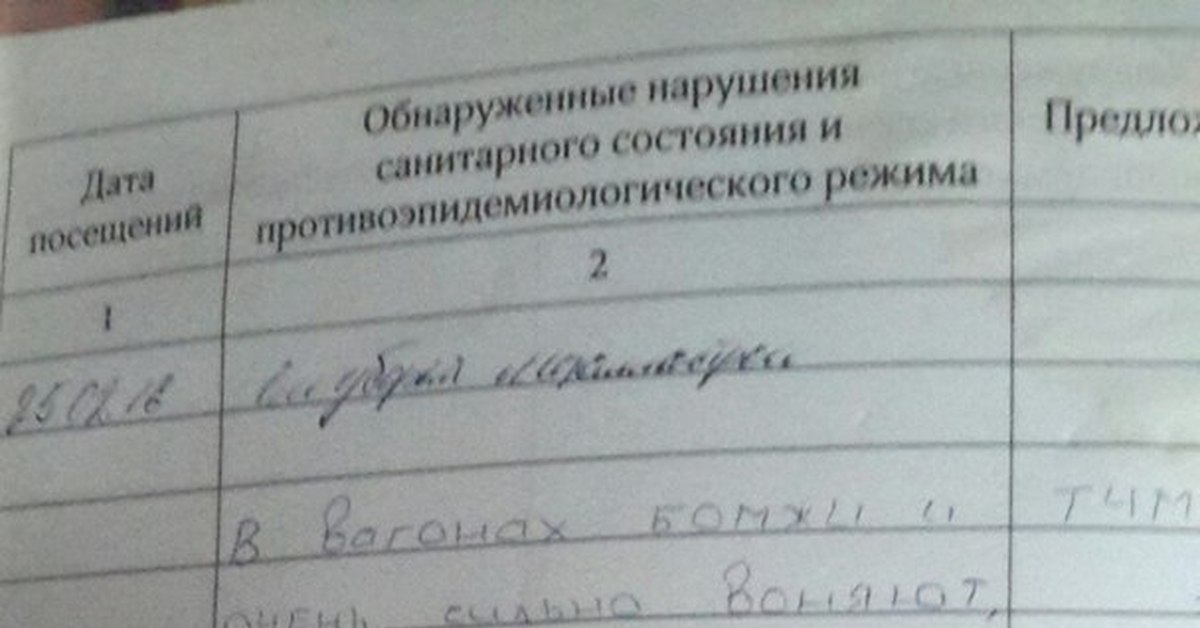 Дата
посещений
Обнаруженные нарушения
санитарного состояния и
противоэпидемиологического режима
Предлож
1
2
25 02 16
В вагонах бомжи и
ТЧМ
очень сильно воняют,